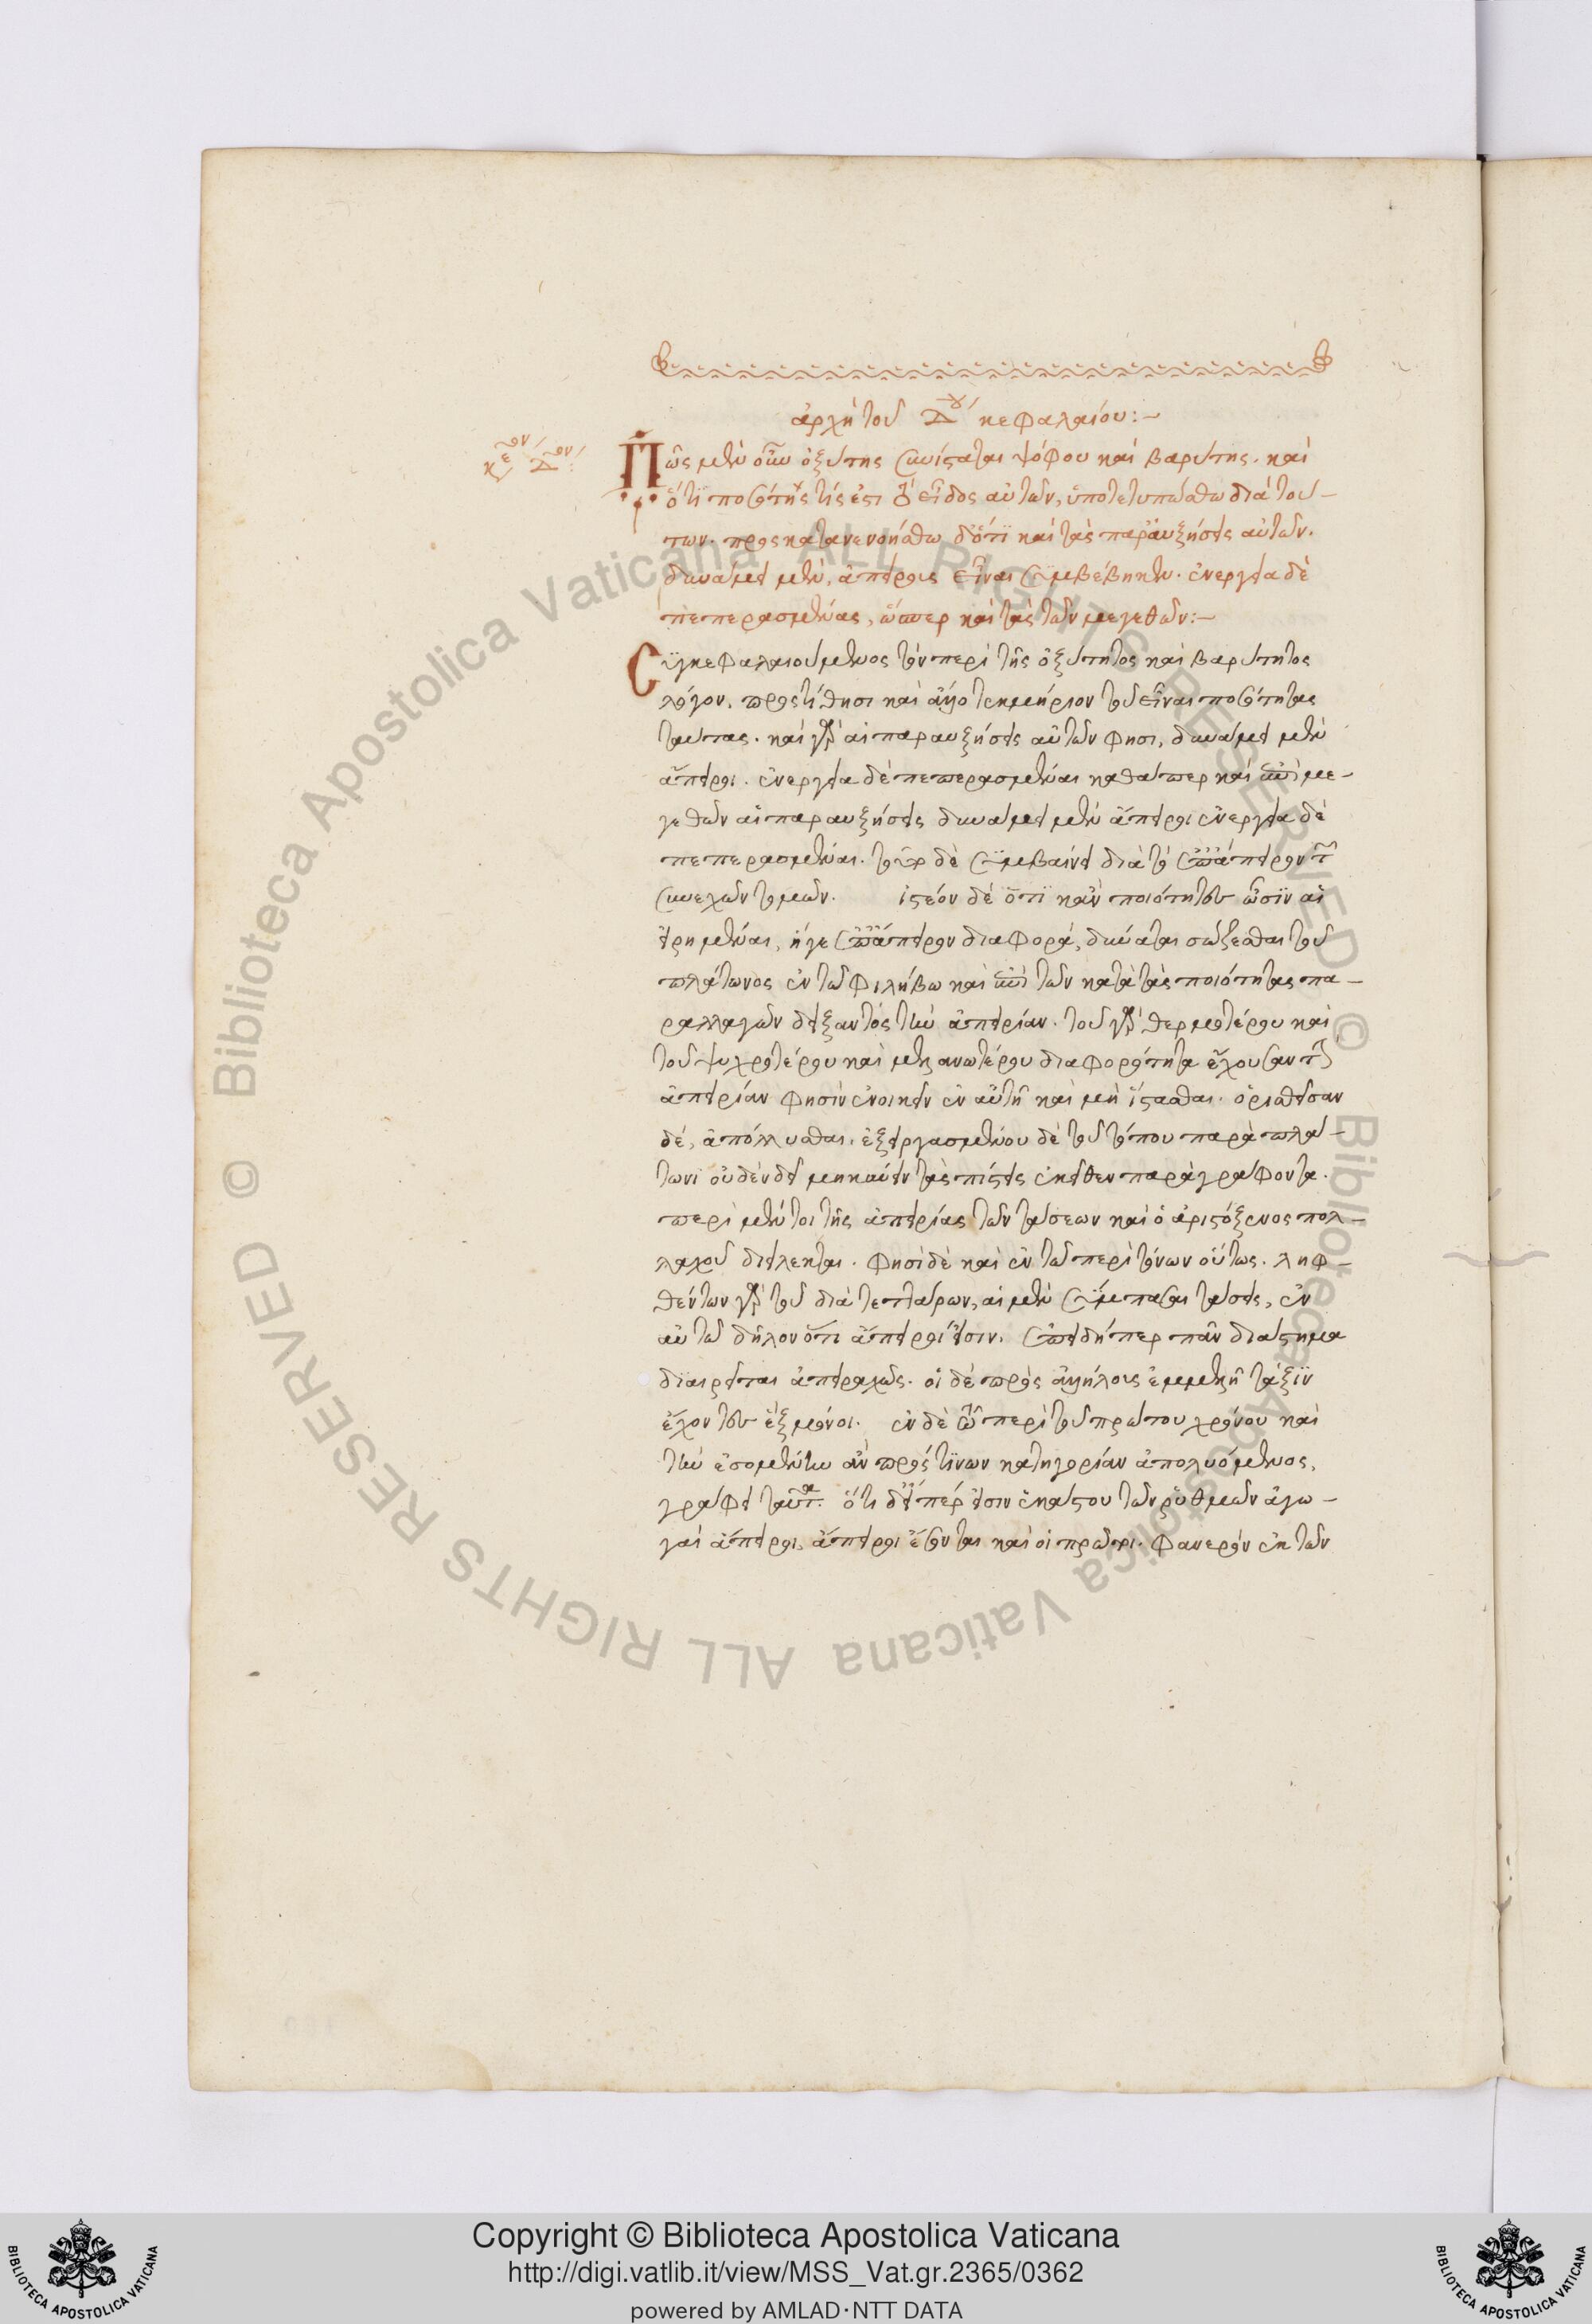 ἀρχὴ τοῦ Δου κεφαλαίου:—
κεον Δον:
Πῶς μὲν οὖν ὀξύτης συνίσταται ψόφου καὶ βαρύτης. καὶ
ὅτι ποσότητός τίς ἐστι τὸ εἶδος αὐτῶν, ὑποτετυπώσθω διὰ τού-
των. προσκατανενοήσθω δ' ὅτι καὶ τὰς παραυξήσεις αὐτῶν.
δυνάμει μὲν, ἀπείρους εἶναι συμβέβηκεν. ἐνεργεία δὲ
πεπερασμένας, ὥσπερ καὶ τὰς τῶν μεγεθῶν:—
Συγκεφαλαιούμενος τὸν περὶ τῆς ὀξύτητος καὶ βαρύτητος
λόγον. προστίθησι καὶ ἄλλο τεκμήριον τοῦ εἶναι ποσότητας
ταύτας. καὶ γὰρ αἱ παραυξήσεις αὐτῶν φησι, δυνάμει μὲν
ἄπειροι. ἐνεργεία δὲ πεπερασμέναι καθάπερ καὶ ἐπὶ με-
γεθῶν αἱ παραυξήσεις δυνάμει μὲν ἄπειροι ἐνεργεία δὲ
πεπερασμέναι. τοῦτο δὲ συμβαίνει διὰ τὸ ἐπ' ἄπειρον τῶν
συνεχῶν τομῶν. ἰστέον δὲ ὅτι κἂν ποιότητες ὦσιν αἱ
εἰρημέναι, ἥ γε ἐπ' ἄπειρον διαφορά, δύναται σώζεσθαι τοῦ
πλάτωνος ἐν τῶ φιλήβω καὶ ἐπὶ τῶν κατὰ τὰς ποιότητας πα-
ραλλαγῶν δείξαντος τὴν ἀπειρίαν. τοῦ γὰρ θερμοτέρου καὶ
τοῦ ψυχροτέρου καὶ μανωτέρου διαφορότητα ἔχουσαν τὴν
ἀπειρίαν φησὶν ἐνοικεῖν ἐν αὐτῆ καὶ μὴ ἵστασθαι. ὁρισθεῖσαν
δὲ, ἀπόλλυσθαι. ἐξειργασμένου δὲ τοῦ τόπου παρὰ πλά-
τωνι οὐδὲν δεῖ μηκύνειν τὰς πίστεις ἐκεῖθεν παραγράφοντα.
περὶ μέντοι τῆς ἀπειρίας τῶν τάσεων καὶ ὁ ἀριστόξενος πολ-
λαχοῦ διείλεκται. φησὶ δὲ καὶ ἐν τῶ περὶ τόνων οὕτως. ληφ-
θέντων γὰρ τοῦ διὰ τεττάρων, αἱ μὲν σύμπασαι τάσεις, ἐν
αὐτῶ δῆλον ὅτι ἄπειροί εἰσιν. ἐπειδήπερ πᾶν διάστημα
διαιρεῖται ἀπειραχῶς. οἱ δὲ πρὸς ἀλλήλους ἐμμελῆ τάξιν
ἔχοντες ἓξ μόνοι. ἐν δὲ τῶ περὶ τοῦ πρώτου χρόνου καὶ
τὴν ἐσομένην ἂν πρός τινων κατηγορίαν ἀπολυόμενος,
γράφει ταῦτα. ὅτι δ' εἴπερ εἰσιν ἑκάστου τῶν ῥυθμῶν ἀγω-
γαὶ ἄπειροι, ἄπειροι ἔσονται καὶ οἱ πρῶτοι. φανερὸν ἐκ τῶν
Copyright © Biblioteca Apostolica Vaticana
http://digi.vatlib.it/view/MSS_Vat.gr.2365/0362
powered by AMLAD·NTT DATA
BIBLIOTECA APOSTOLICA VATICANA
BIBLIOTECA APOSTOLICA VATICANA
© Biblioteca Apostolica Vaticana ALL RIGHTS RESERVED © Biblioteca Apostolica Vaticana ALL RIGHTS RESERVED